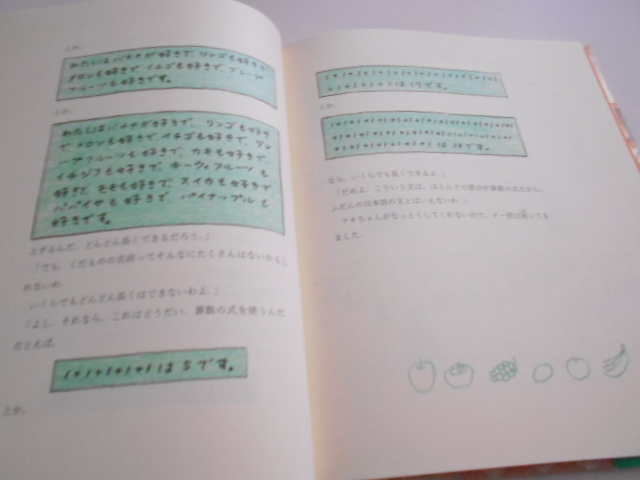 とか、
わたしは バナナが 好きで、リンゴも 好きで、
メロンも 好きで、イチゴも 好きで、グレープ
フルーツも 好きです。
とか、
わたしは バナナが 好きで、リンゴも 好き
で、メロンも 好きで、イチゴも 好きで、グレ
ープフルーツも 好きで、カキも 好きで、
イチジクも 好きで、キーウィフルーツも
好きで、モモも 好きで、スイカも 好きで
パパイヤも 好きで、パイナップルも
好きです。
とするんだ。どんどん長くできるだろう。」
「でも、くだものの名前ってそんなにたくさんはないかもし
れないわ。
いくらでもどんどん長くはできないわよ。」
「よし、それなら、これはどうだい。算数の式を使うんだ
たとえば、
1+1+1+1+1は5です。
とか、
は17です。
とか、
は38です。
なら、いくらでも長くできるよ。」
「だめよ。こういう文は、ほとんどの部分が算数の式だから、
ふだんの日本語の文とはいえないわ。」
アキちゃんがなっとくしてくれないので、ナー君は困ってき
ました。